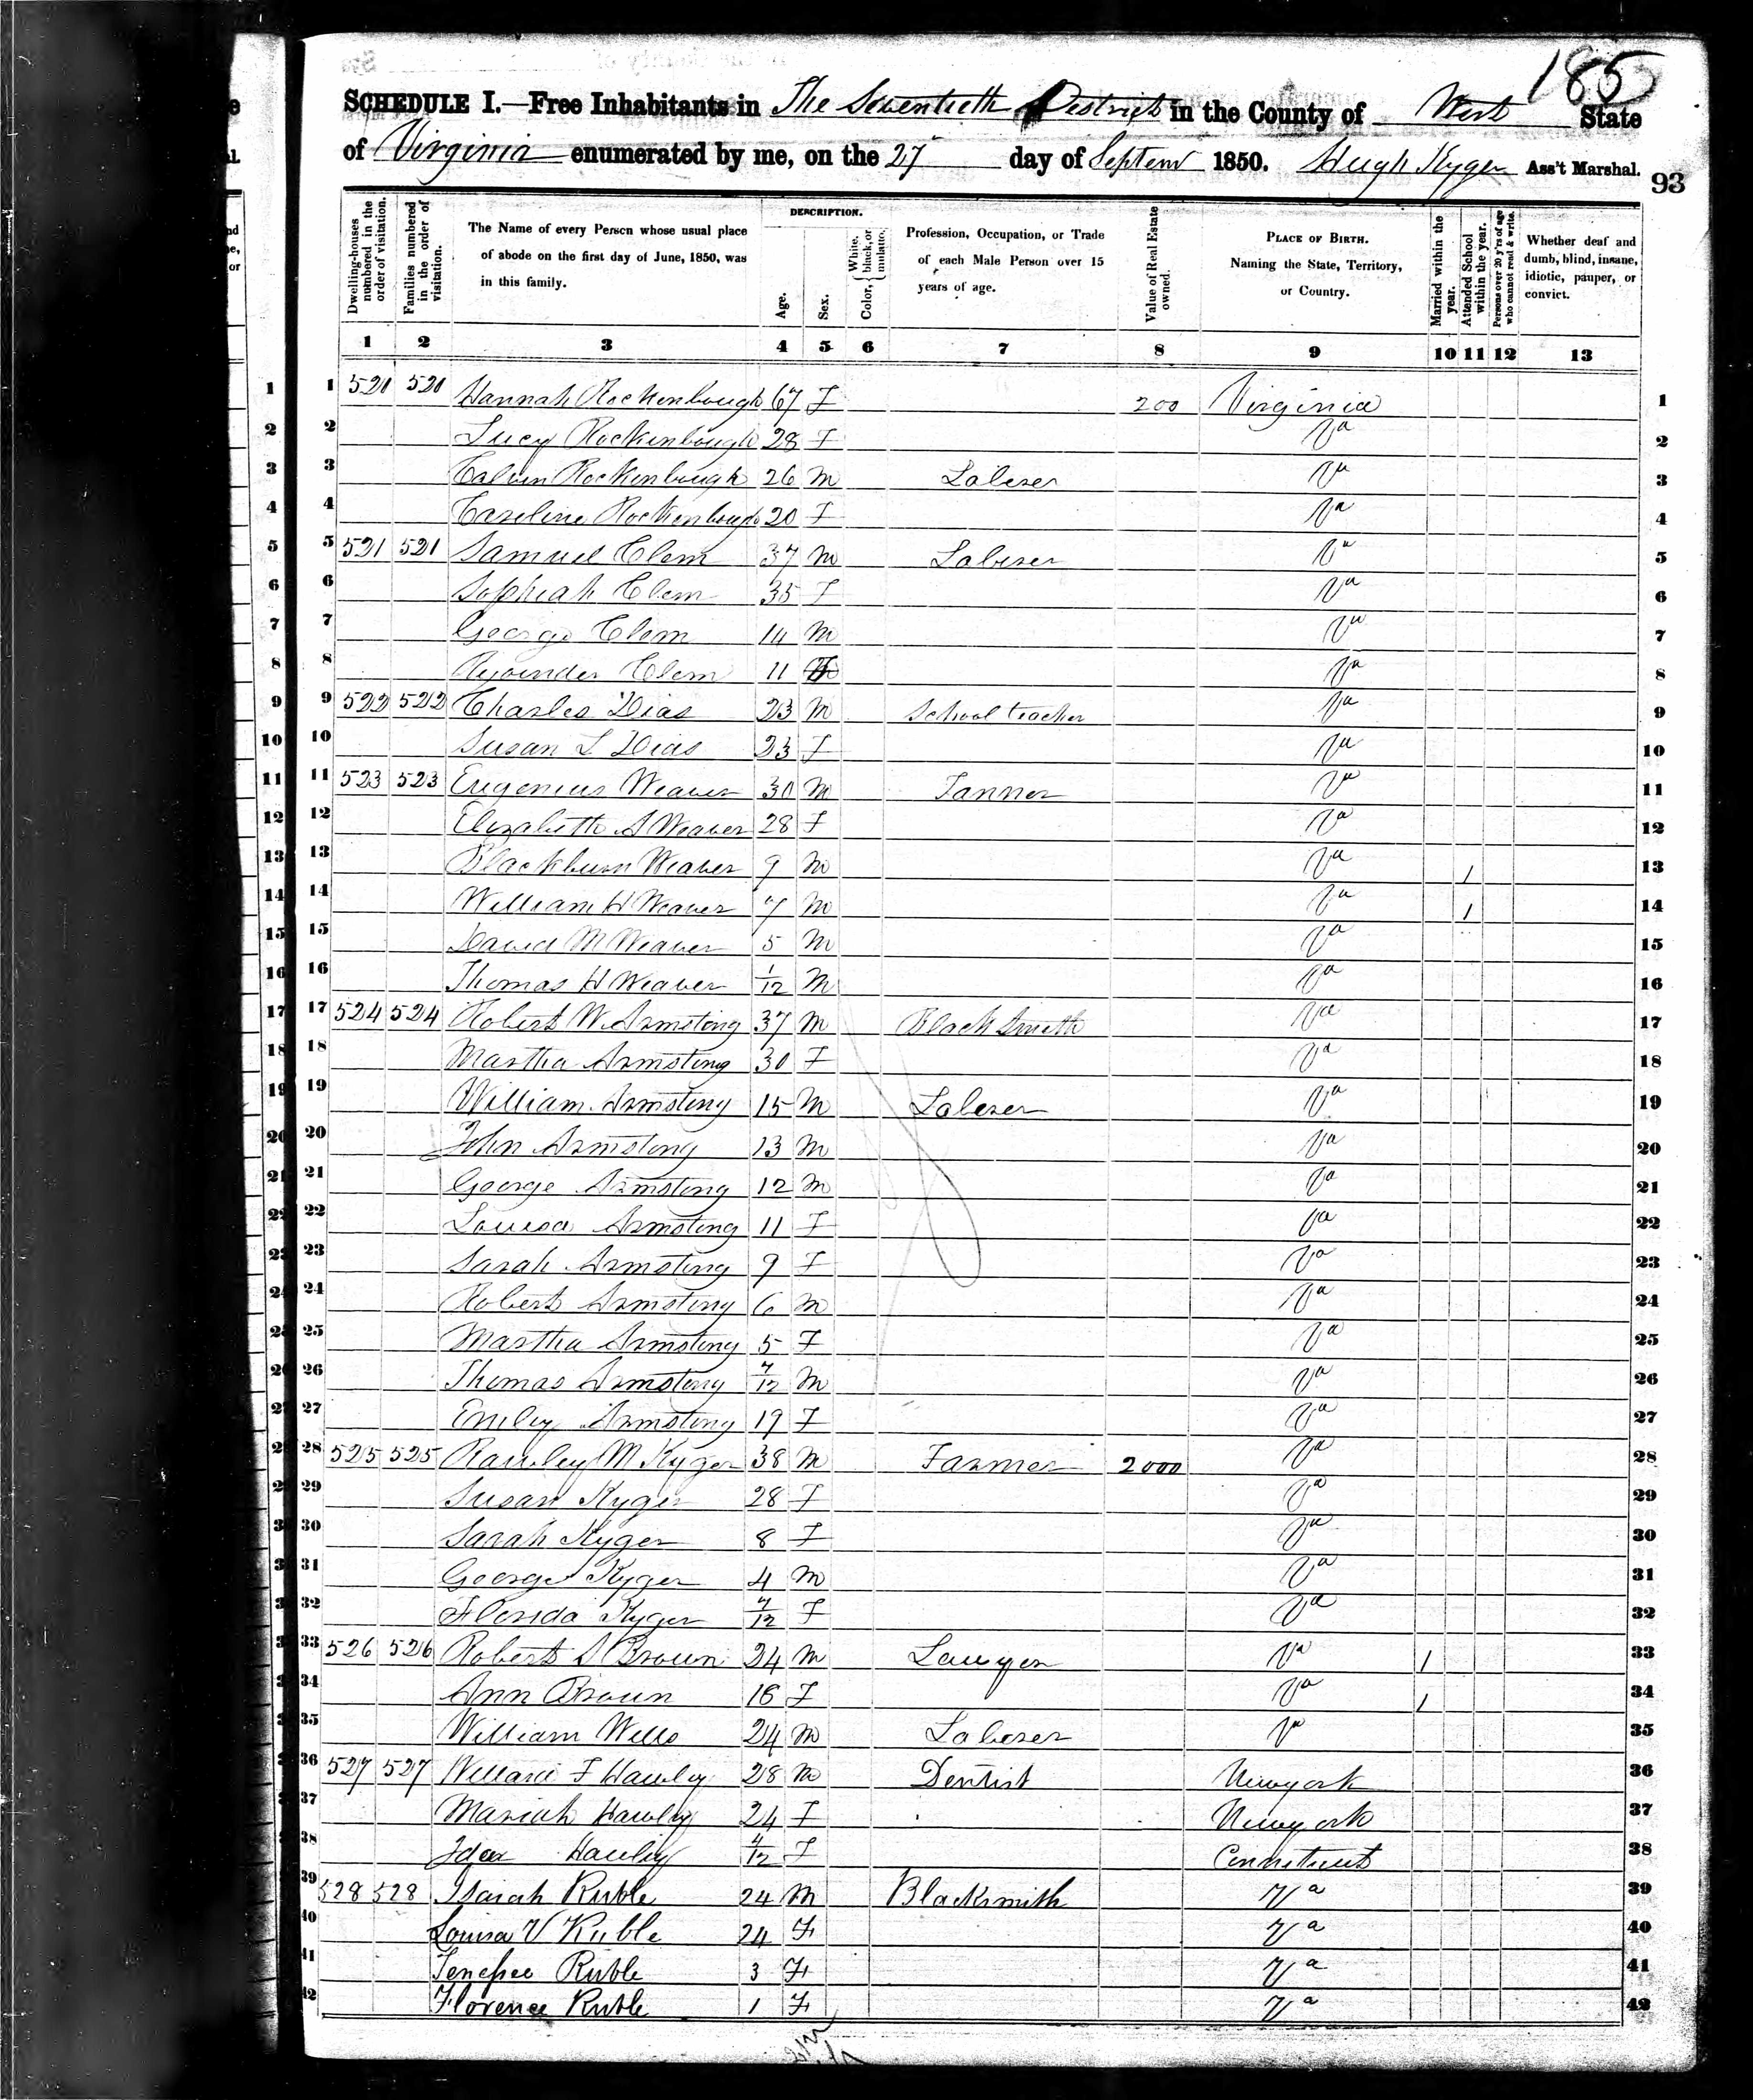 185
SCHEDULE I.—Free Inhabitants in The Seventieth District in the County of Wirt State
of Virginia enumerated by me, on the 27 day of Septem 1850. Hugh Kyger Ass't Marshal.
93
Dwelling-houses numbered in the order of visitation.
Families numbered in the order of visitation.
The Name of every Person whose usual place of abode on the first day of June, 1850, was in this family.
DESCRIPTION.
Age.
Sex.
Color, White, black, or mulatto.
Profession, Occupation, or Trade of each Male Person over 15 years of age.
Value of Real Estate owned.
PLACE OF BIRTH. Naming the State, Territory, or Country.
Married within the year.
Attended School within the year.
Persons over 20 y'rs of age who cannot read & write.
Whether deaf and dumb, blind, insane, idiotic, pauper, or convict.
1 2 3 4 5 6 7 8 9 10 11 12 13
1 520 520 Hannah Rockenbough 67 F 200 Virginia 1
2 Lucy Rockenbough 28 F Va 2
3 Calvin Rockenbough 26 M Laberer Va 3
4 Caroline Rockenbough 20 F Va 4
5 521 521 Samuel Clem 37 M Laberer Va 5
6 Sophiah Clem 35 F Va 6
7 George Clem 14 M Va 7
8 Clem 11 Va 8
9 522 522 Charles Dias 23 M School teacher Va 9
10 Susan L Dias 23 F Va 10
11 523 523 Eugenius Weaver 30 M Tanner Va 11
12 Elizabeth S Weaver 28 F Va 12
13 Blackburn Weaver 9 M Va 1 13
14 William H Weaver 7 M Va 1 14
15 David M Weaver 5 M Va 15
16 Thomas H Weaver 1/12 M Va 16
17 524 524 Robert W. Armstrng 37 M Black Smith Va 17
18 Martha Armstrng 30 F Va 18
19 William Armstrng 15 M Laberer Va 19
20 John Armstrng 13 M Va 20
21 George Armstrng 12 M Va 21
22 Louisa Armstrng 11 F Va 22
23 Sarah Armstrng 9 F Va 23
24 Robert Armstrng 6 M Va 24
25 Martha Armstrng 5 F Va 25
26 Thomas Armstrng 7/12 M Va 26
27 Emiley Armstrng 19 F Va 27
28 525 525 Rawley M Kyger 38 M Farmer 2000 Va 28
29 Susan Kyger 28 F Va 29
30 Sarah Kyger 8 F Va 30
31 George Kyger 4 M Va 31
32 Florida Kyger 7/12 F Va 32
33 526 526 Robert S Brown 24 M Lawyer Va 1 33
34 Ann Brown 18 F Va 1 34
35 William Wells 24 M Laberer Va 35
36 527 527 F Hawley 28 M Dentist Newyork 36
37 Mariah Hawley 24 F Newyork 37
38 Idea Hawley 4/12 F Connetticut 38
39 528 528 Isaiah Ruble 24 M Blacksmith Va 39
40 Louisa V Ruble 24 F Va 40
41 Tenessee Ruble 3 F Va 41
42 Florence Ruble 1 F Va 42